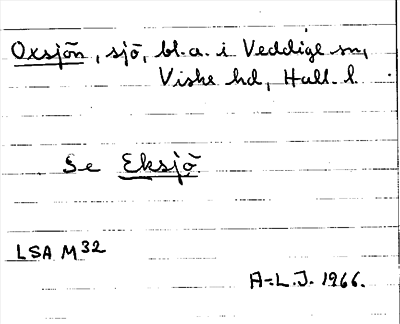 Oxsjön, sjö, bl.a. i Veddige sn,
Viske hd, Hall. l.
Se Eksjö
LSA M32
A-L.J. 1966.